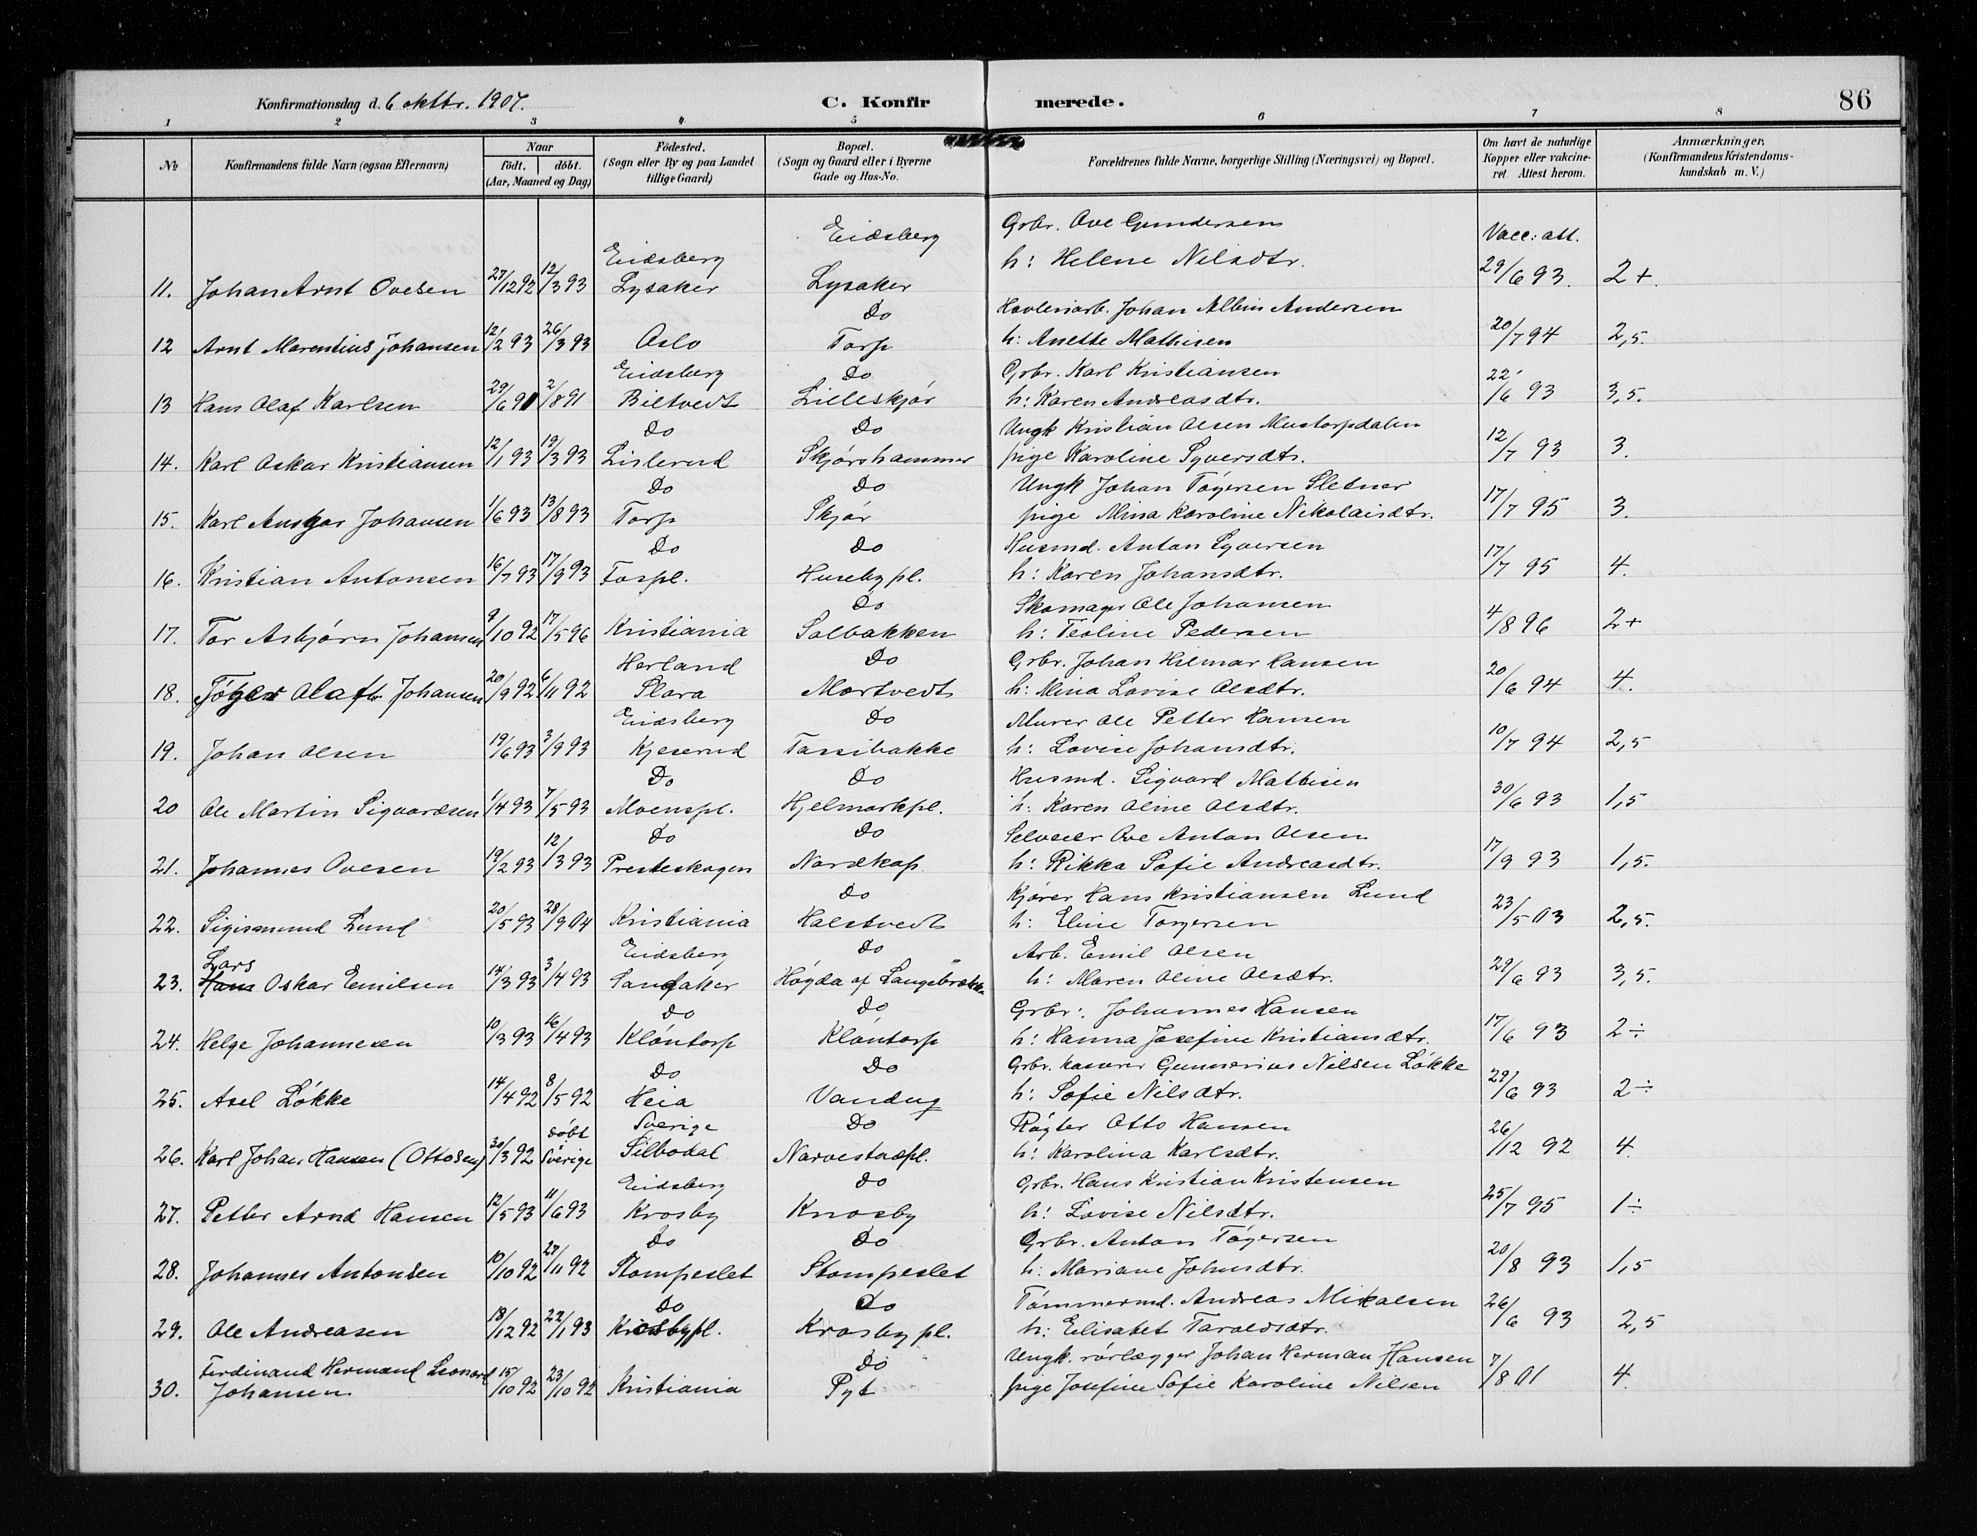 Konfirmationsdag d. 6 oktbr. 1907.
C. Konfirmerede.
86
1 2 3 4 5 6 7 8
No
Konfirmandens fulde Navn (ogsaa Efternavn)
Naar
födt. döbt.
(Aar, Maaned og Dag)
Födested.
(Sogn eller By og paa Landet
tillige Gaard)
Bopæl.
(Sogn og Gaard eller i Byerne
Gade og Hus-No.
Forældrenes fulde Navne, borgerlige Stilling (Næringsvei) og Bopæl.
Om havt de naturlige
Kopper eller vakcine-
ret. Attest herom.
Anmærkninger.
(Konfirmandens Kristendoms-
kundskab m. V.)
Eidsberg Eidsberg Grbr. Ove Gundersen Vacc: att.
11. Johan Arnt Ovesen 27/12 92 12/3 93 Lysaker Lysaker h: Helene Nilsdtr. 29/6 93. 2+.
Do Høvleriarb. Johan Albin Andersen
12 Arnt Marentius Johansen 12/2 93 26/3 93 Oslo Torp h: Anette Mathisen 20/7 94 2,5.
Eidsberg Do Grbr. Karl Kristiansen
13 Hans Olaf Karlsen 29/6 91 2/8 91 Biltvedt Lilleskjør h: Karen Andreasdtr. 22/6 93 3,5.
Do Do Ungk Kristian Olsen Mustorpdalen
14. Karl Oskar Kristiansen 12/1 93 19/3 93 Lislerud Skjørshammer pige Karoline Syversdtr. 12/7 93 3.
Do Do Ungk Johan Tøgersen Sletner
15. Karl Ansgar Johansen 1/6 93 13/8 93 Torp Skjør pige Mina Karoline Nikolaisdtr. 17/7 95 3.
Do Do Husmd. Anton Syversen
16. Kristian Antonsen 16/7 93 17/9 93 Fospl. Husebypl. h: Karen Johansdtr. 17/7 95 4.
Do Skomager Ole Johansen
17. Tor Asbjørn Johansen 9/10 92 17/5 96 Kristiania Solbakken h: Teoline Pedersen 4/8 96 2+
Herland Do Grbr. Johan Hilmar Hansen
18. Tøger Olaf Johansen 20/9 92 6/11 92 Slora Mortvedt h: Mina Lovise Olsdtr. 20/6 94 4.
Eidsberg Do Murer Ole Petter Hansen
19. Johan Olsen 19/6 93 3/9 93 Kjeserud Tassibakke h: Lovise Johansdtr. 10/7 94 2,5
Do Do Husmd. Sigvard Mathisen
20 Ole Martin Sigvardsen 1/4 93 7/5 93 Moenspl. Hjelmarkpl. h: Karen Oline Olsdtr. 30/6 93 1,5
Do Do Selveier Ove Anton Olsen
21. Johannes Ovesen 19/2 93 12/3 93 Presteskogen Nordkap. h: Rikka Sofie Andreasdtr. 17/9 93 1,5.
Do Kjører Hans Kristiansen Lund
22. Sigismund Lund 20/5 93 28/9 04 Kristiania Halstvedt h: Eline Torgersen 23/5 03 2,5.
Lars Eidsberg Do Arb. Emil Olsen
23. Hans Oskar Emilsen 14/3 93 3/4 93 Sandaker Høgda af h: Maren Oline Olsdtr. 29/6 93 3,5.
Do Do Grbr: Johannes Hansen
24. Helge Johannesen 10/3 93 16/4 93 Kløntorp Kløntorp h: Hanna Josefine Kristiansdtr. 17/6 93 2÷
Do Do Grbr. kaserer Gunnerius Nilsen Løkke
25. Axel Løkke 14/4 92 8/5 92 Heia Vandug h: Sofie Nilsdtr. 29/6 93 2÷
døbt i Sverige Do Røgter Otto Hansen
26. Karl Johan Hansen (Ottosen) 30/3 92 Sverige Silbodal Narvestadpl. h: Karolina Karlsdtr. 26/12 92 4.
Eidsberg Do Grbr. Hans Kristian Kristensen
27. Petter Arnd Hansen 12/5 93 11/6 93 Krosby Krosby h: Lovise Nilsdtr. 25/7 95 1÷
Do Do Grbr. Anton Tøgersen
28. Johannes Antonsen 10/10 92 27/11 92 Stompeslet Stompeslet h: Mariane Johnsdtr. 20/8 93 1,5
Do Do Tømmermd. Andreas Mikalsen
29. Ole Andreasen 18/12 92 22/1 93 Krosbypl. Krosbypl. h: Elisabet Taraldsdtr. 26/6 93 2,5
Ferdinand Hermand Leonard Do Ungk. rørlægger Johan Herman Hansen
30. Johansen 15/10 92 23/10 92 Kristiania Pyt pige Josefine Sofie Karoline Nilsen 7/8 01 4.